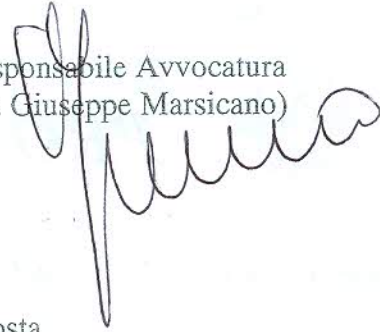 sponsabile Avvocatura
Giuseppe Marsicano)
osta